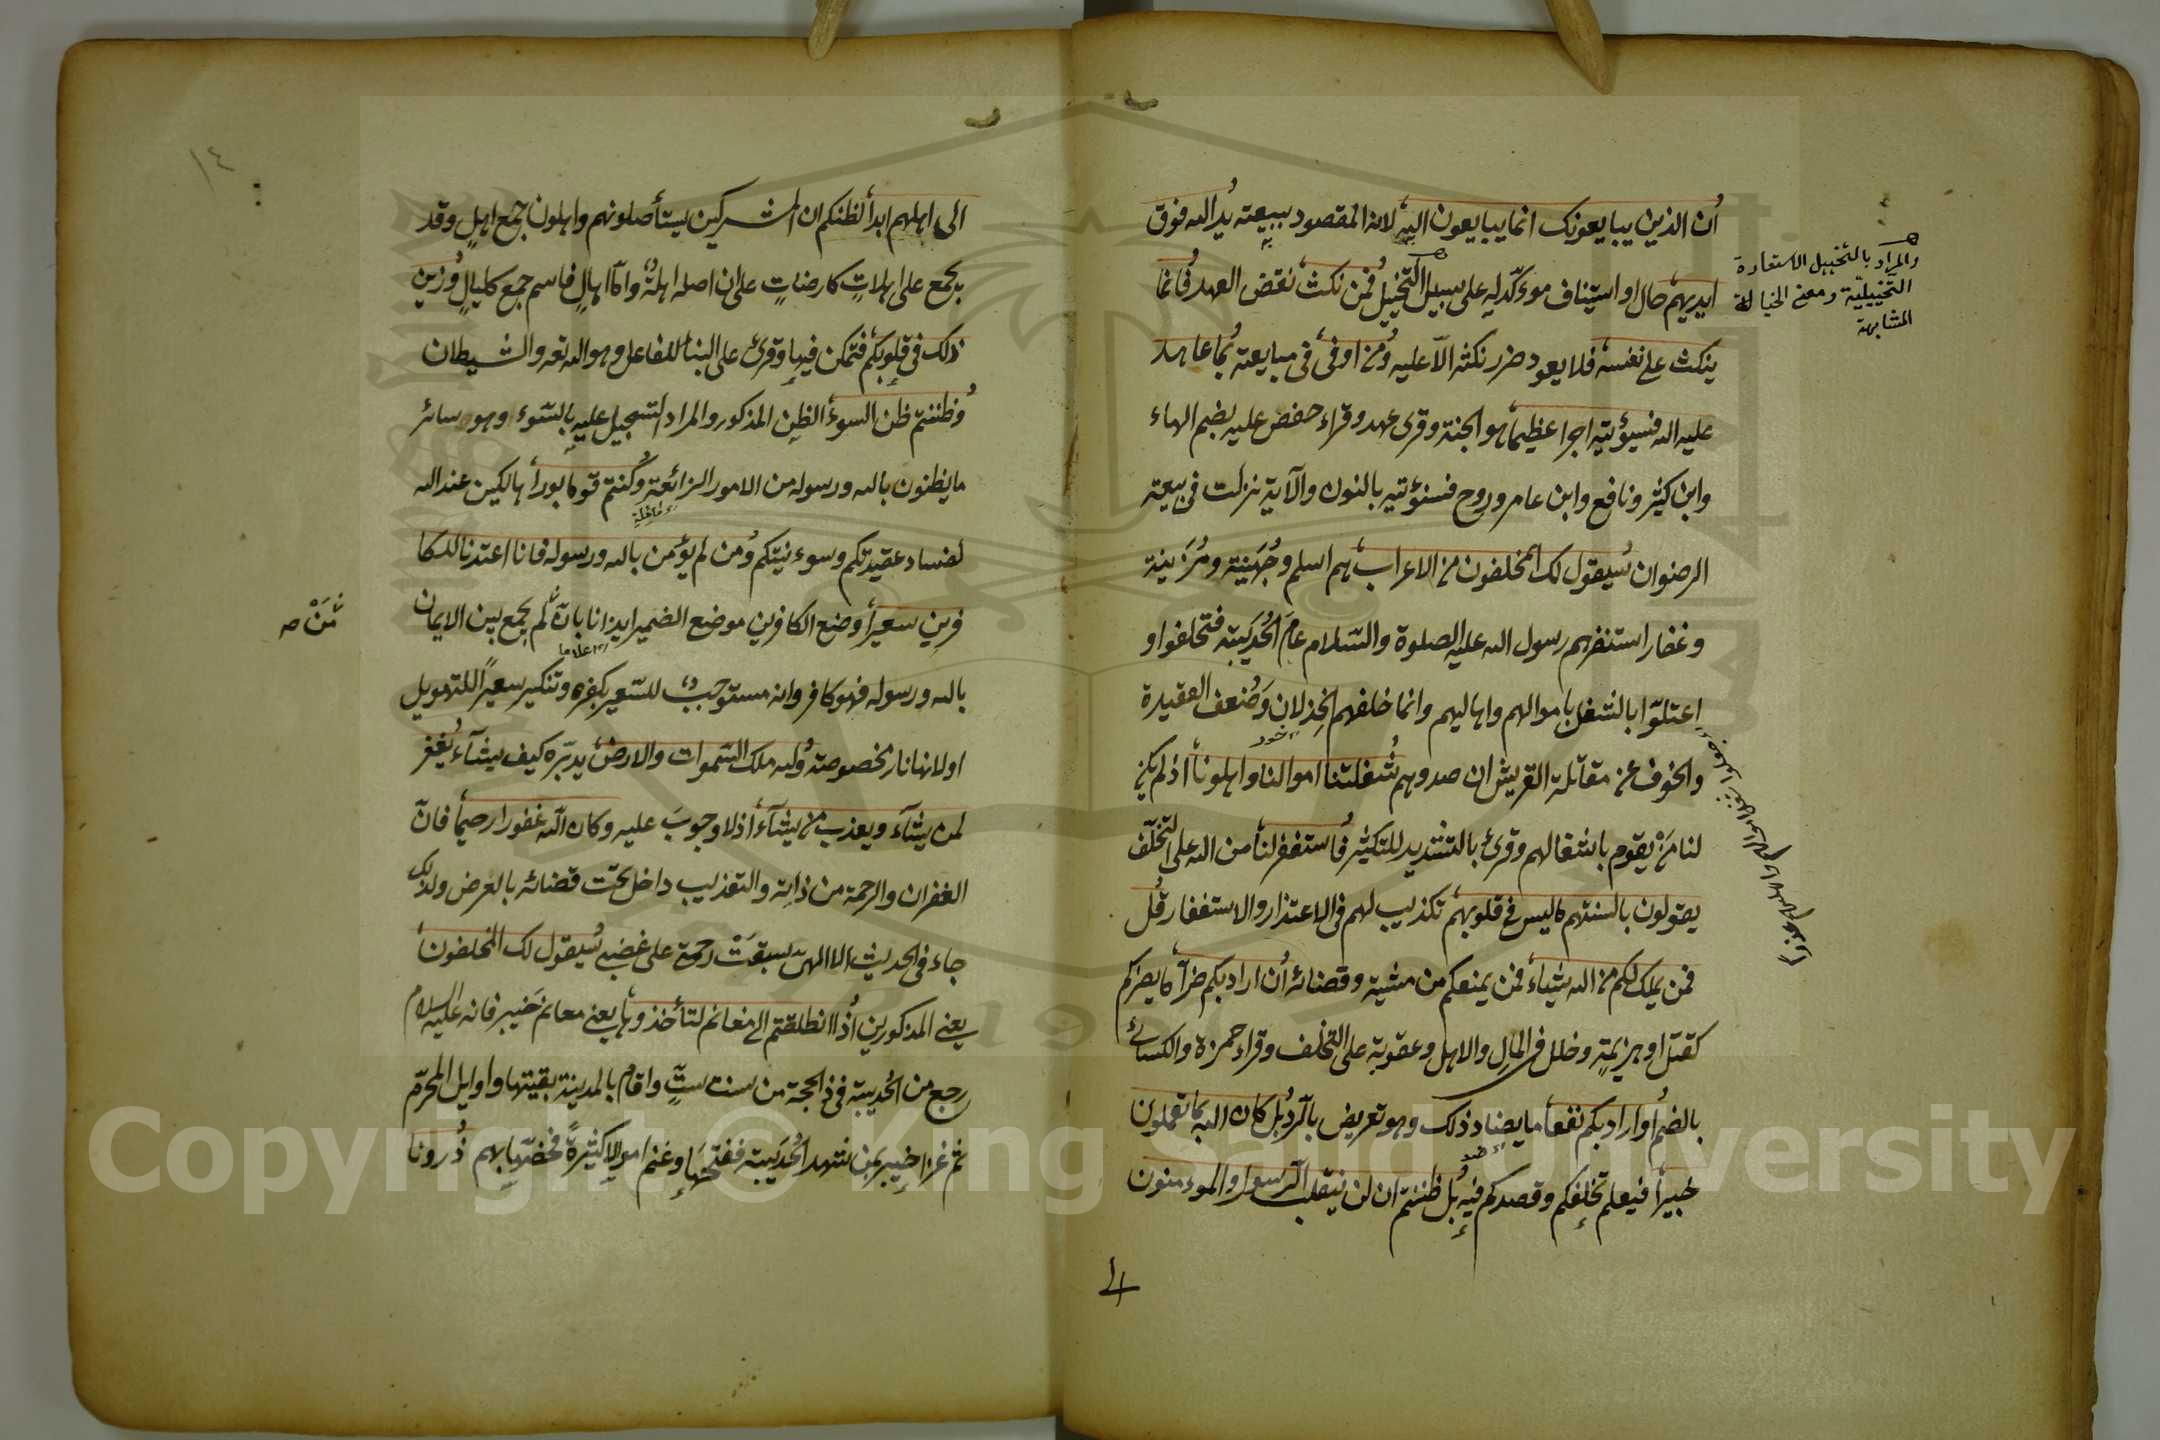 ان الذين يبايعونك انما يبايعون الله لانه المقصود ببيعته يد الله فوق
ايديهم حال او استيناف موءكّد له على سبيل التخييل فمن نكث نقض العهد فانما
ينكث على نفسه فلا يعود ضرر نكثه الّا عليه ومن اوفى في مبايعته بما عاهد
عليه الله فسيؤتيه اجرا عظيما هو الجنة وقرئ عهد وقراء حفص عليه بضم الهاء
وابن كثير ونافع وابن عامر وروح فسنؤتيه بالنون والآية نزلت في بيعة
الرضوان سيقول لك المخلفون من الاعراب هم اسلم وجُهَينة ومُزَينة
وغفار استنفرهم رسول الله عليه الصلوة والسّلام عامَ الحُدَيبية فتخلفوا و
اعتلّوا بالشغل باموالهم واهاليهم وانما خلفهم الخذلان وَضُعف العقيدة
والخوف عن مقاتلة القريش ان صدوهم شغلتنا اموالنا واهلونا اذ لم يكن
لنا مَنْ يقوم باشغالهم وقرئ بالتشديد للتكثير فاستغفر لنا من الله على التخلّف
يقولون بالسنتهم ما ليس في قلوبهم تكذيب لهم في الاعتذار والاستغفار قل
فمن يملك لكم من الله شيئاء فمن يمنعكم من مشيته وقضائه ان اراد بكم ضرا ما يضركم
كقتل او هزيمة وخلل في المال والاهل وعقوبة على التخلف وقراء حمزة والكسائي
بالضم او اراد بكم نفعا ما يضاد ذلك وهو تعريض بالرد بل كان الله بما تعملون
خبيرا فيعلم تخلفكم وقصدكم فيه بل ظننتم ان لن ينقلب الرسول والموءمنون
والمراد بالتخييل الاستعارة
التخييلية ومعنى الخيالة
المشابهة
الى
١٤
الى اهلهم ابدا لظنكم ان المشركين يستأصلونهم واهلون جمع اهل وقد
يجمع على اهلات كارضات على ان اصله اهلة واما اهال فاسم جمع كليال وزين
ذلك في قلوبكم فتمكن فيها وقرئ على البناء للفاعل وهو الله تعه والشيطان
وظننتم ظن السوء الظن المذكور والمراد لتسجيل عليه بالسّوء وهو سائر
ما يظنون بالله ورسوله من الامور الزائغة وكنتم قوما بورا هالكين عند الله
لفساد عقيدتكم وسوء نيتكم ومن لم يؤمن بالله ورسوله فانا اعتدنا للكا
فرين سعيرا وضع الكافرين موضع الضمير ايذانا بانّ لم يجمع بين الايمان
مَنْ صه
بالله ورسوله فهو كافر وانه مستوجب للسّعير بكفره وتنكير سعيرًا للتهويل
او لانها نار مخصوصة ولله ملك السّموات والارض يدبّره كيف يشآء يغفر
لمن يشآء ويعذب من يشآء اذ لا وجوبَ عليه وكان الله غفورا رحيما فانّ
الغفران والرحمة من ذاته والتعذيب داخل تحت قضائه بالعرض ولذلك
جاء في الحديث الالهي سبقَتْ رحمتي على غضبي سيقول لك المخلفون
يعني المذكورين اذا انطلقتم الى مغانم لتأخذوها يعني مغانم خيبر فانه عليه السلام
رجع من الحُديبية في ذي الحجة من سنة ستّ واقام بالمدينة بقيتها واوايل المحرّم
ثم غزا خيبر بمن شهد الحُدَيبية ففتحها وغنم اموالا كثيرة فخصّها بهم ذرونا
Copyright © King Saud University